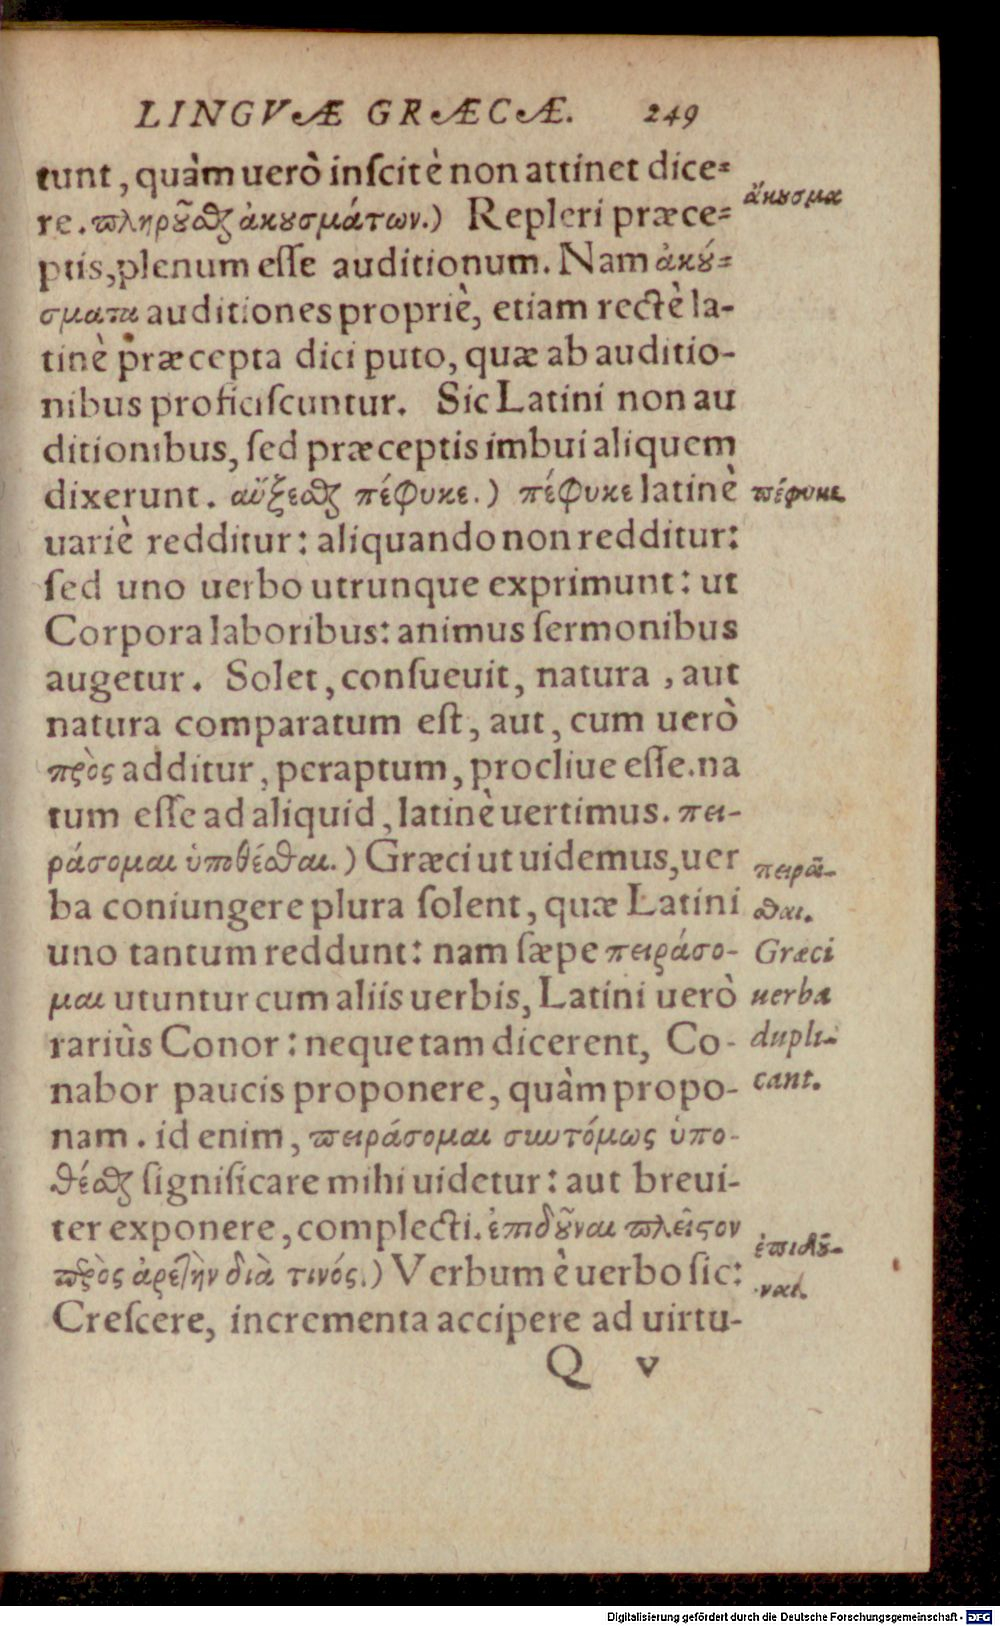 LINGVÆ GRÆCÆ. 249
tunt, quàm uerò inſcitè non attinet dice=
re. πληροῦσθαι ἀκουσμάτων.) Repleri præce=
ptis, plenum eſſe auditionum. Nam ἀκού=
σματα auditiones propriè, etiam rectè la-
tinè præcepta dici puto, quæ ab auditio-
nibus proficiſcuntur. Sic Latini non au
ditionibus, ſed præceptis imbui aliquem
dixerunt. αὔξεσθαι πέφυκε.) πέφυκε latinè
uariè redditur: aliquando non redditur:
ſed uno uerbo utrunque exprimunt: ut
Corpora laboribus: animus ſermonibus
augetur. Solet, conſueuit, natura, aut
natura comparatum eſt, aut, cum uerò
πρὸς additur, peraptum, procliue eſſe. na
tum eſſe ad aliquid, latinè uertimus. πει-
ράσομαι ὑποθέσθαι.) Græci ut uidemus, uer
ba coniungere plura ſolent, quæ Latini
uno tantum reddunt: nam ſæpe πειράσο-
μαι utuntur cum aliis uerbis, Latini uerò
rariùs Conor: neque tam dicerent, Co-
nabor paucis proponere, quàm propo-
nam. id enim, πειράσομαι συντόμως ὑπο-
θέσθαι ſignificare mihi uidetur: aut breui-
ter exponere, complecti. ἐπιδοῦναι πλεῖστον
πρὸς ἀρετὴν διὰ τινός.) Verbum è uerbo ſic:
Creſcere, incrementa accipere ad uirtu-
Q v
ἄκουσμα
πέφυκε.
πειρᾶ-
σθαι.
Græci
uerba
dupli-
cant.
ἐπιδοῦ-
ναι.
Digitalisierung gefördert durch die Deutsche Forschungsgemeinschaft - DFG